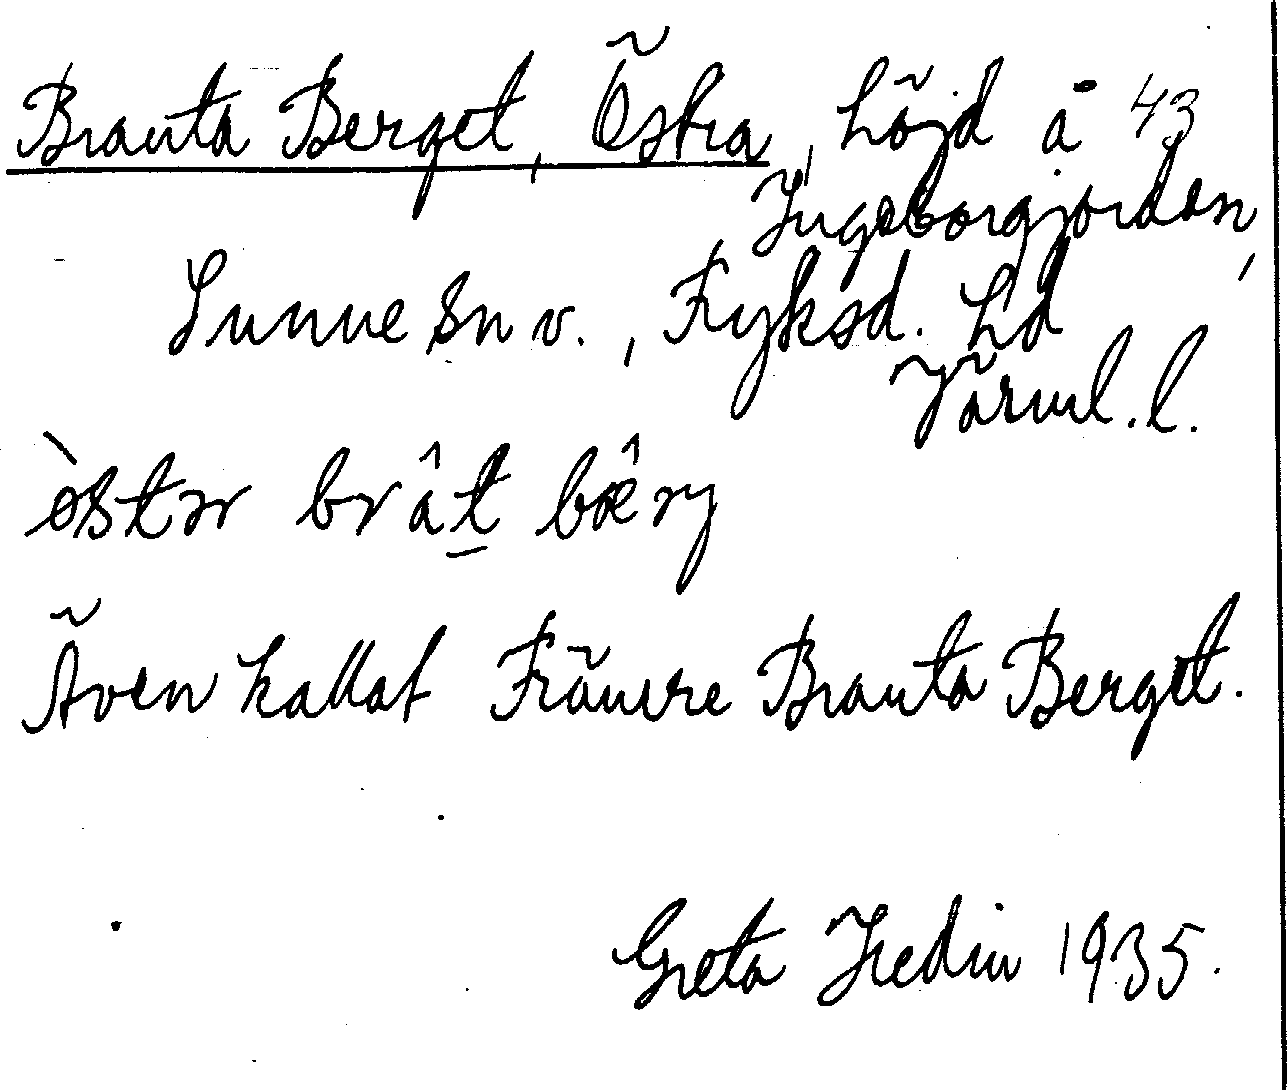 Branta Berget, Östra, höjd å 43
Ingeborgjorden,
Sunne sn v., Fryksd. hd
Värml. l.
òstər brât bæ̂rj
Även kallat Främre Branta Berget.
Greta Hedin 1935.